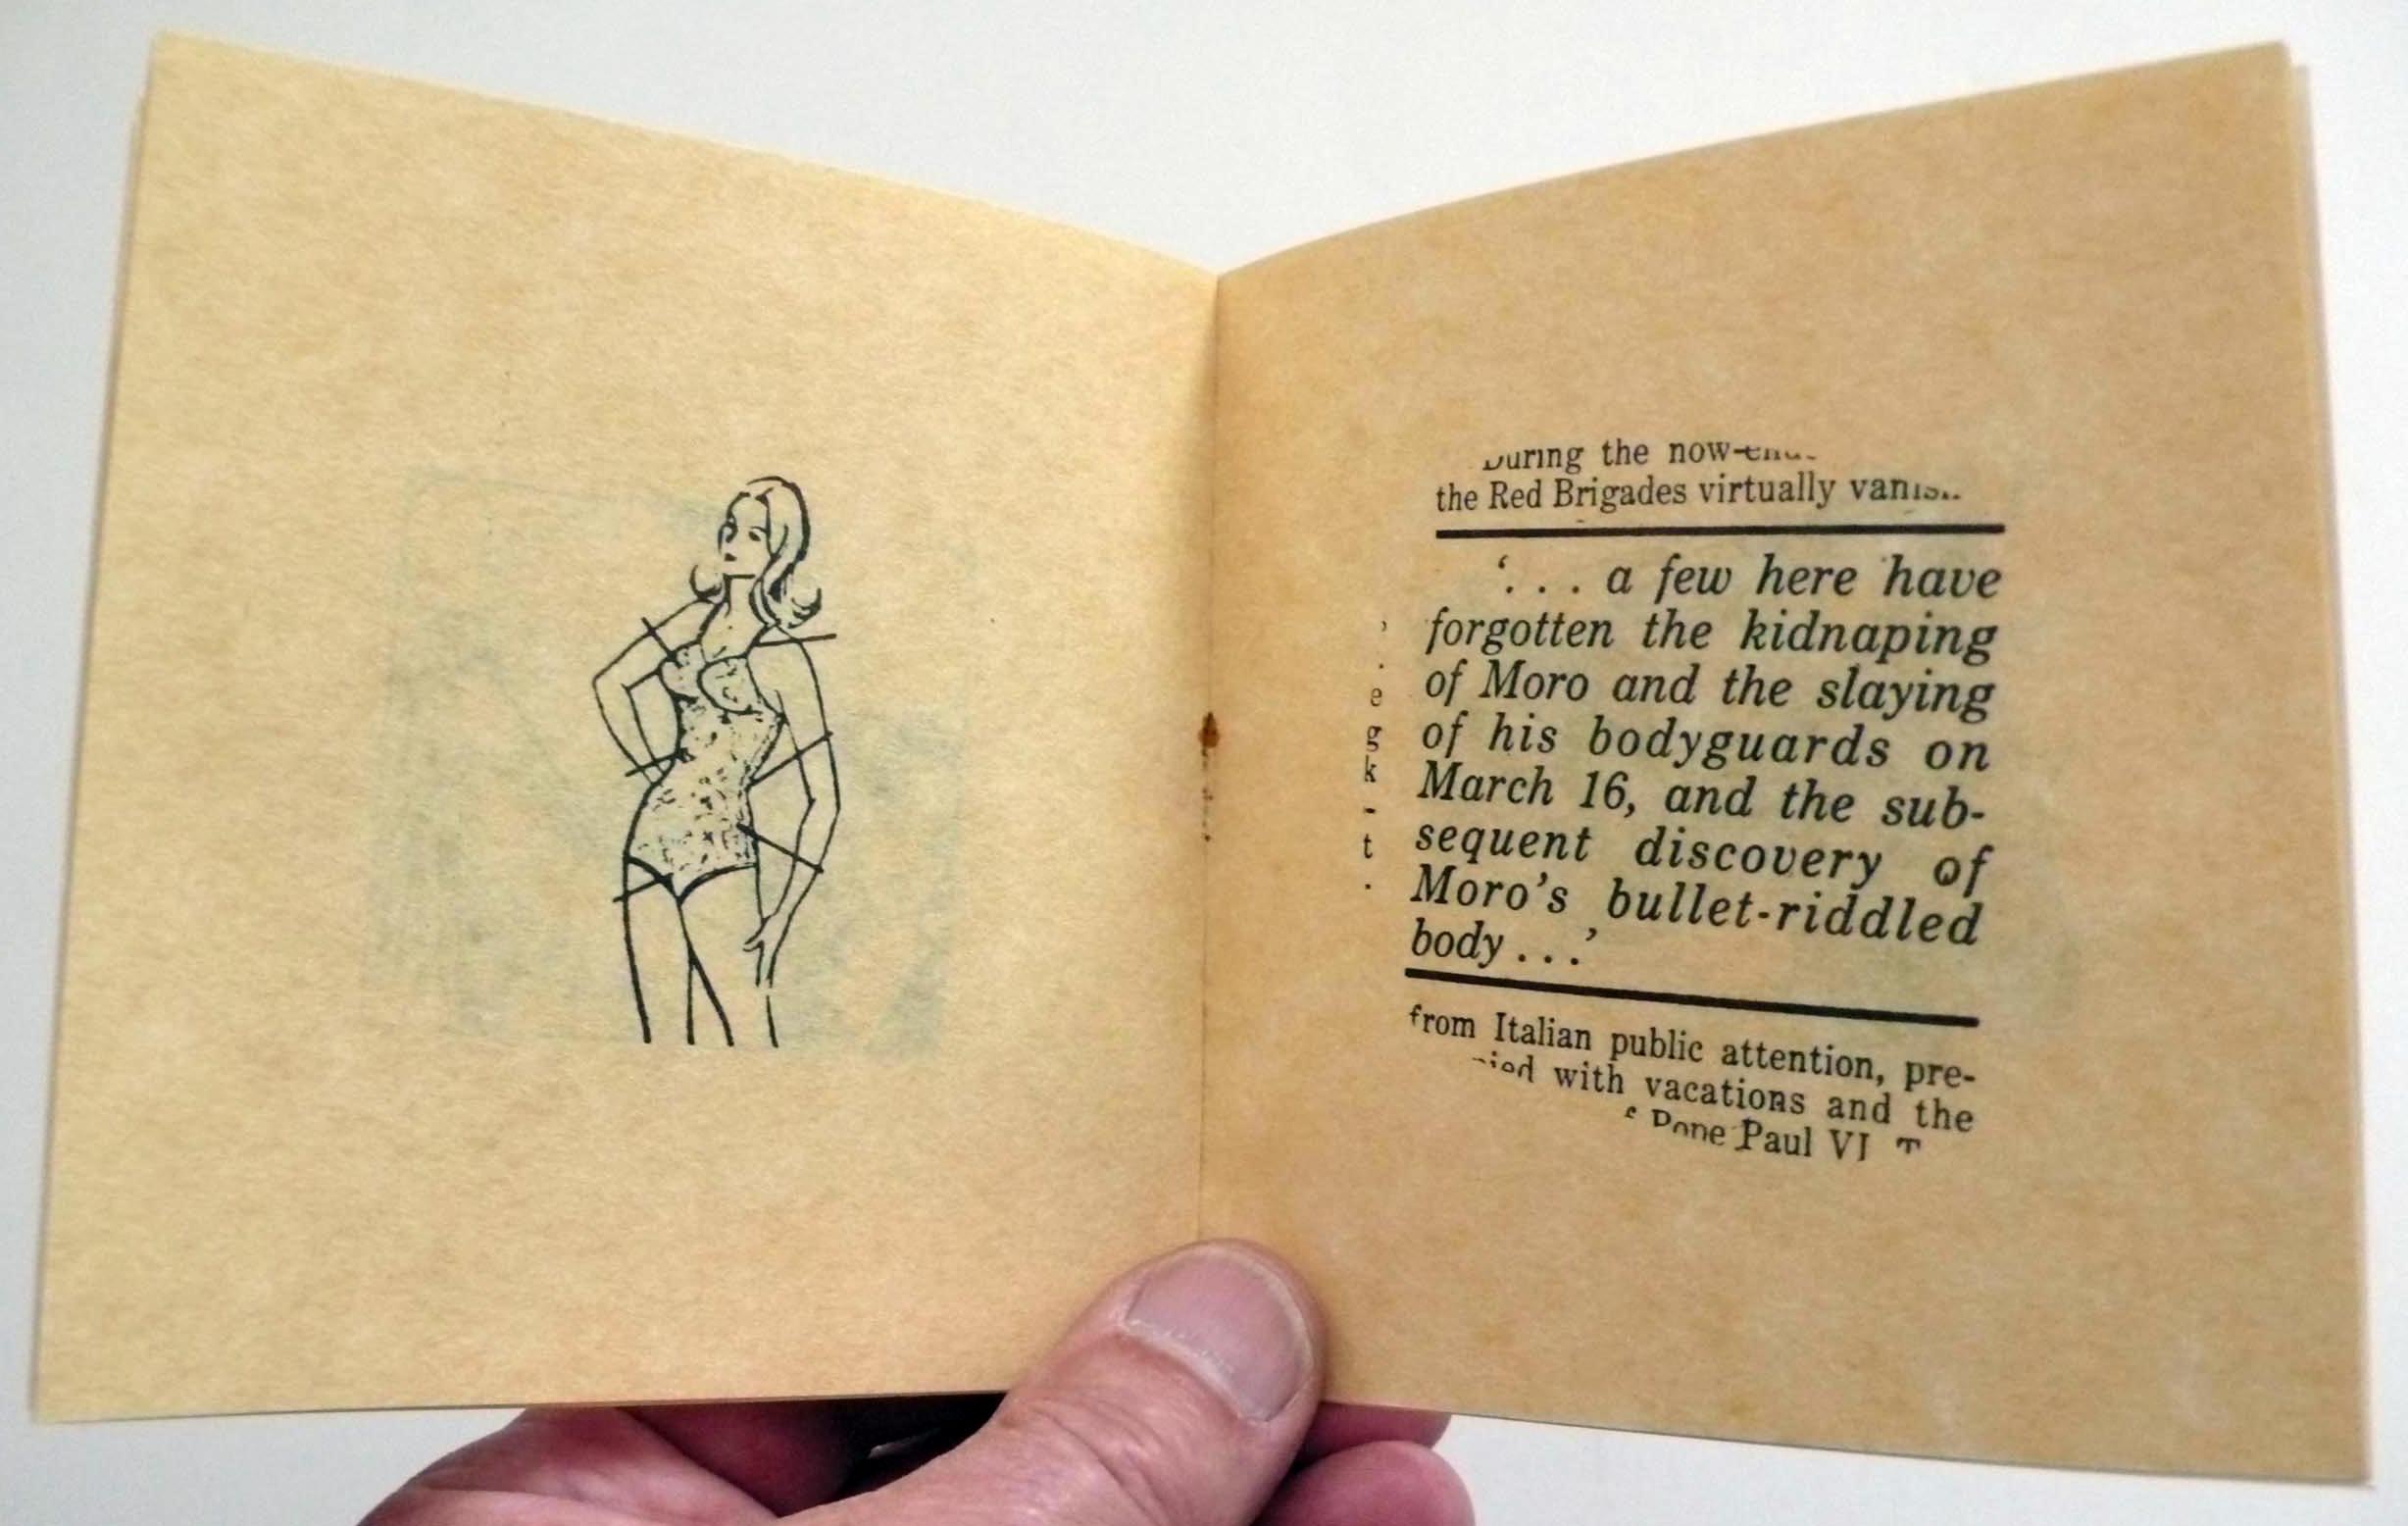 During the now-
the Red Brigades virtually
‘. . . a few here have
forgotten the kidnaping
of Moro and the slaying
of his bodyguards on
March 16, and the sub-
sequent discovery of
Moro’s bullet-riddled
body . . .’
,
.
e
g
k
-
t
.
from Italian public attention, pre-
with vacations and the
Pope Paul VI